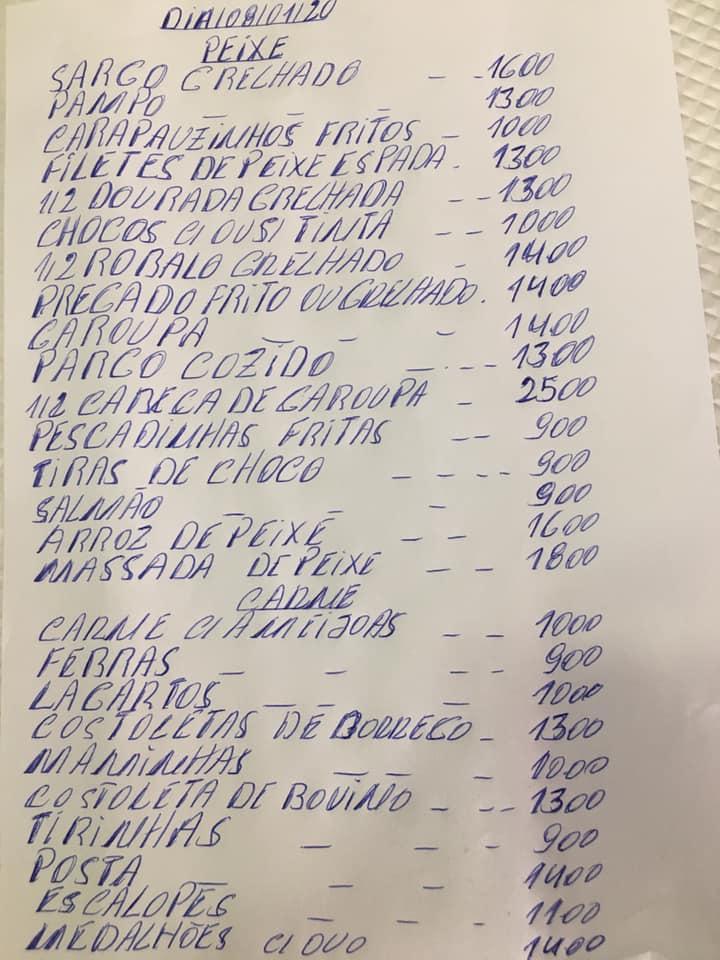 DIA/08/01/20
PEIXE
SARGO GRELHADO - - 1600
PAMPO - - - 1300
CARAPAUZINHOS FRITOS - 1000
FILETES DE PEIXE ESPADA . 1300
1/2 DOURADA GRELHADA - - 1300
CHOCOS C/ OU S/ TINTA - - 1000
1/2 ROBALO GRELHADO - 1400
PREGADO FRITO OU GRELHADO . 1400
GAROUPA - - - 1400
PARGO COZIDO - - - - 1300
1/2 CABECA DE GAROUPA - 2500
PESCADINHAS FRITAS - - 900
TIRAS DE CHOCO - - - - 900
SALMÃO - - - 900
ARROZ DE PEIXE - - 1600
MASSADA DE PEIXE - - 1800
CARNE
CARNE C/ AMEIJOAS - - 1000
FEBRAS - - - - 900
LAGARTOS - - - 1000
COSTOLETAS DE BORREGO - 1300
MAMINHAS - - - 1000
COSTOLETA DE BOVINO - - - 1300
TIRINHAS - - - 900
POSTA - - - 1400
ESCALOPES - - - 1100
MEDALHÕES C/ OVO 1400